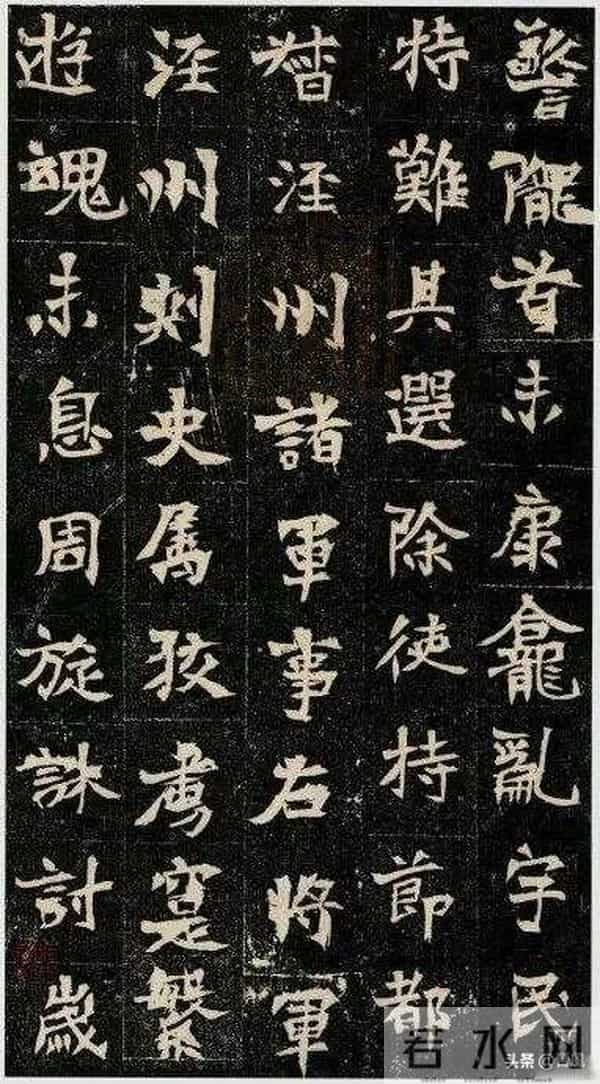 警隴首未康龕亂字民
特難其選除使持節都
督涇州諸軍事右將軍
涇州刺史属狡虜寔繁
遊魂未息周旋誅討歲
若水网
头条